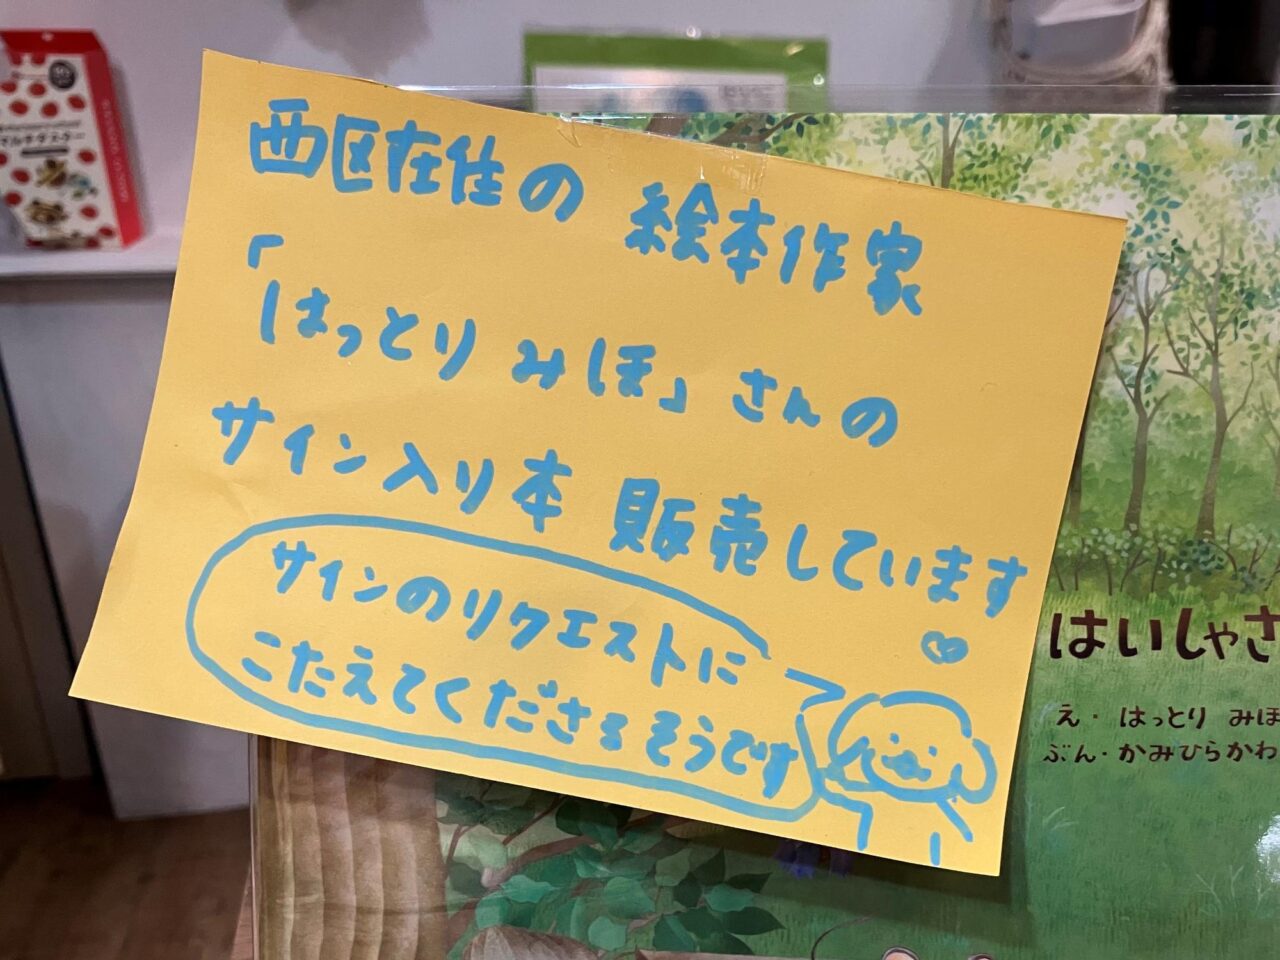 西区在住の 絵本作家
「はっとり みほ」さんの
サイン入り本 販売しています
サインのリクエストに
こたえてくださるそうです
はいしゃさ
え・はっとり みほ
ぶん・かみひらかわ